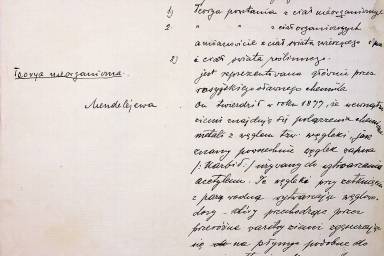 1) Teorya powstania z ciał nieorganicznych
2. " " z ciał organicznych
a mianowicie z ciał świata
2) z ciał świata roślinnego.
Teorya nieorganiczna. jest reprezentowana głównie przez
rosyjskiego sławnego chemika
Mendelejewa On twierdził w roku 1877, że wewnątrz
ziemi znajdują się połączenia
metali z węglem tzw. węgliki, jak
znany powszechnie węglik wapna
/:Karbid:/ używany do wytwarzania
acetylenu. Te węgliki przy zetknięciu
z parą wodną wytwarzają węglowo-
dory - które przechodząc przez
warstwy ziemi
się do na płynny podobne do